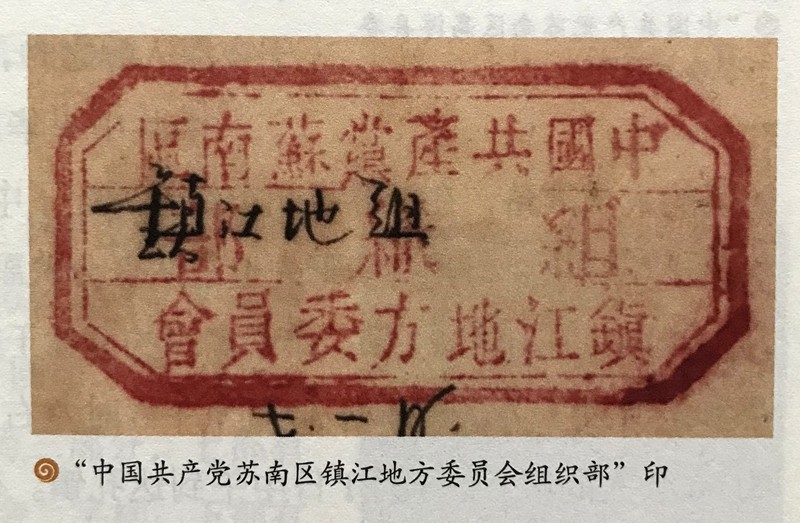 中國共產黨蘇南區
組織部
鎮江地組
鎮江地方委員會
“中国共产党苏南区镇江地方委员会组织部”印